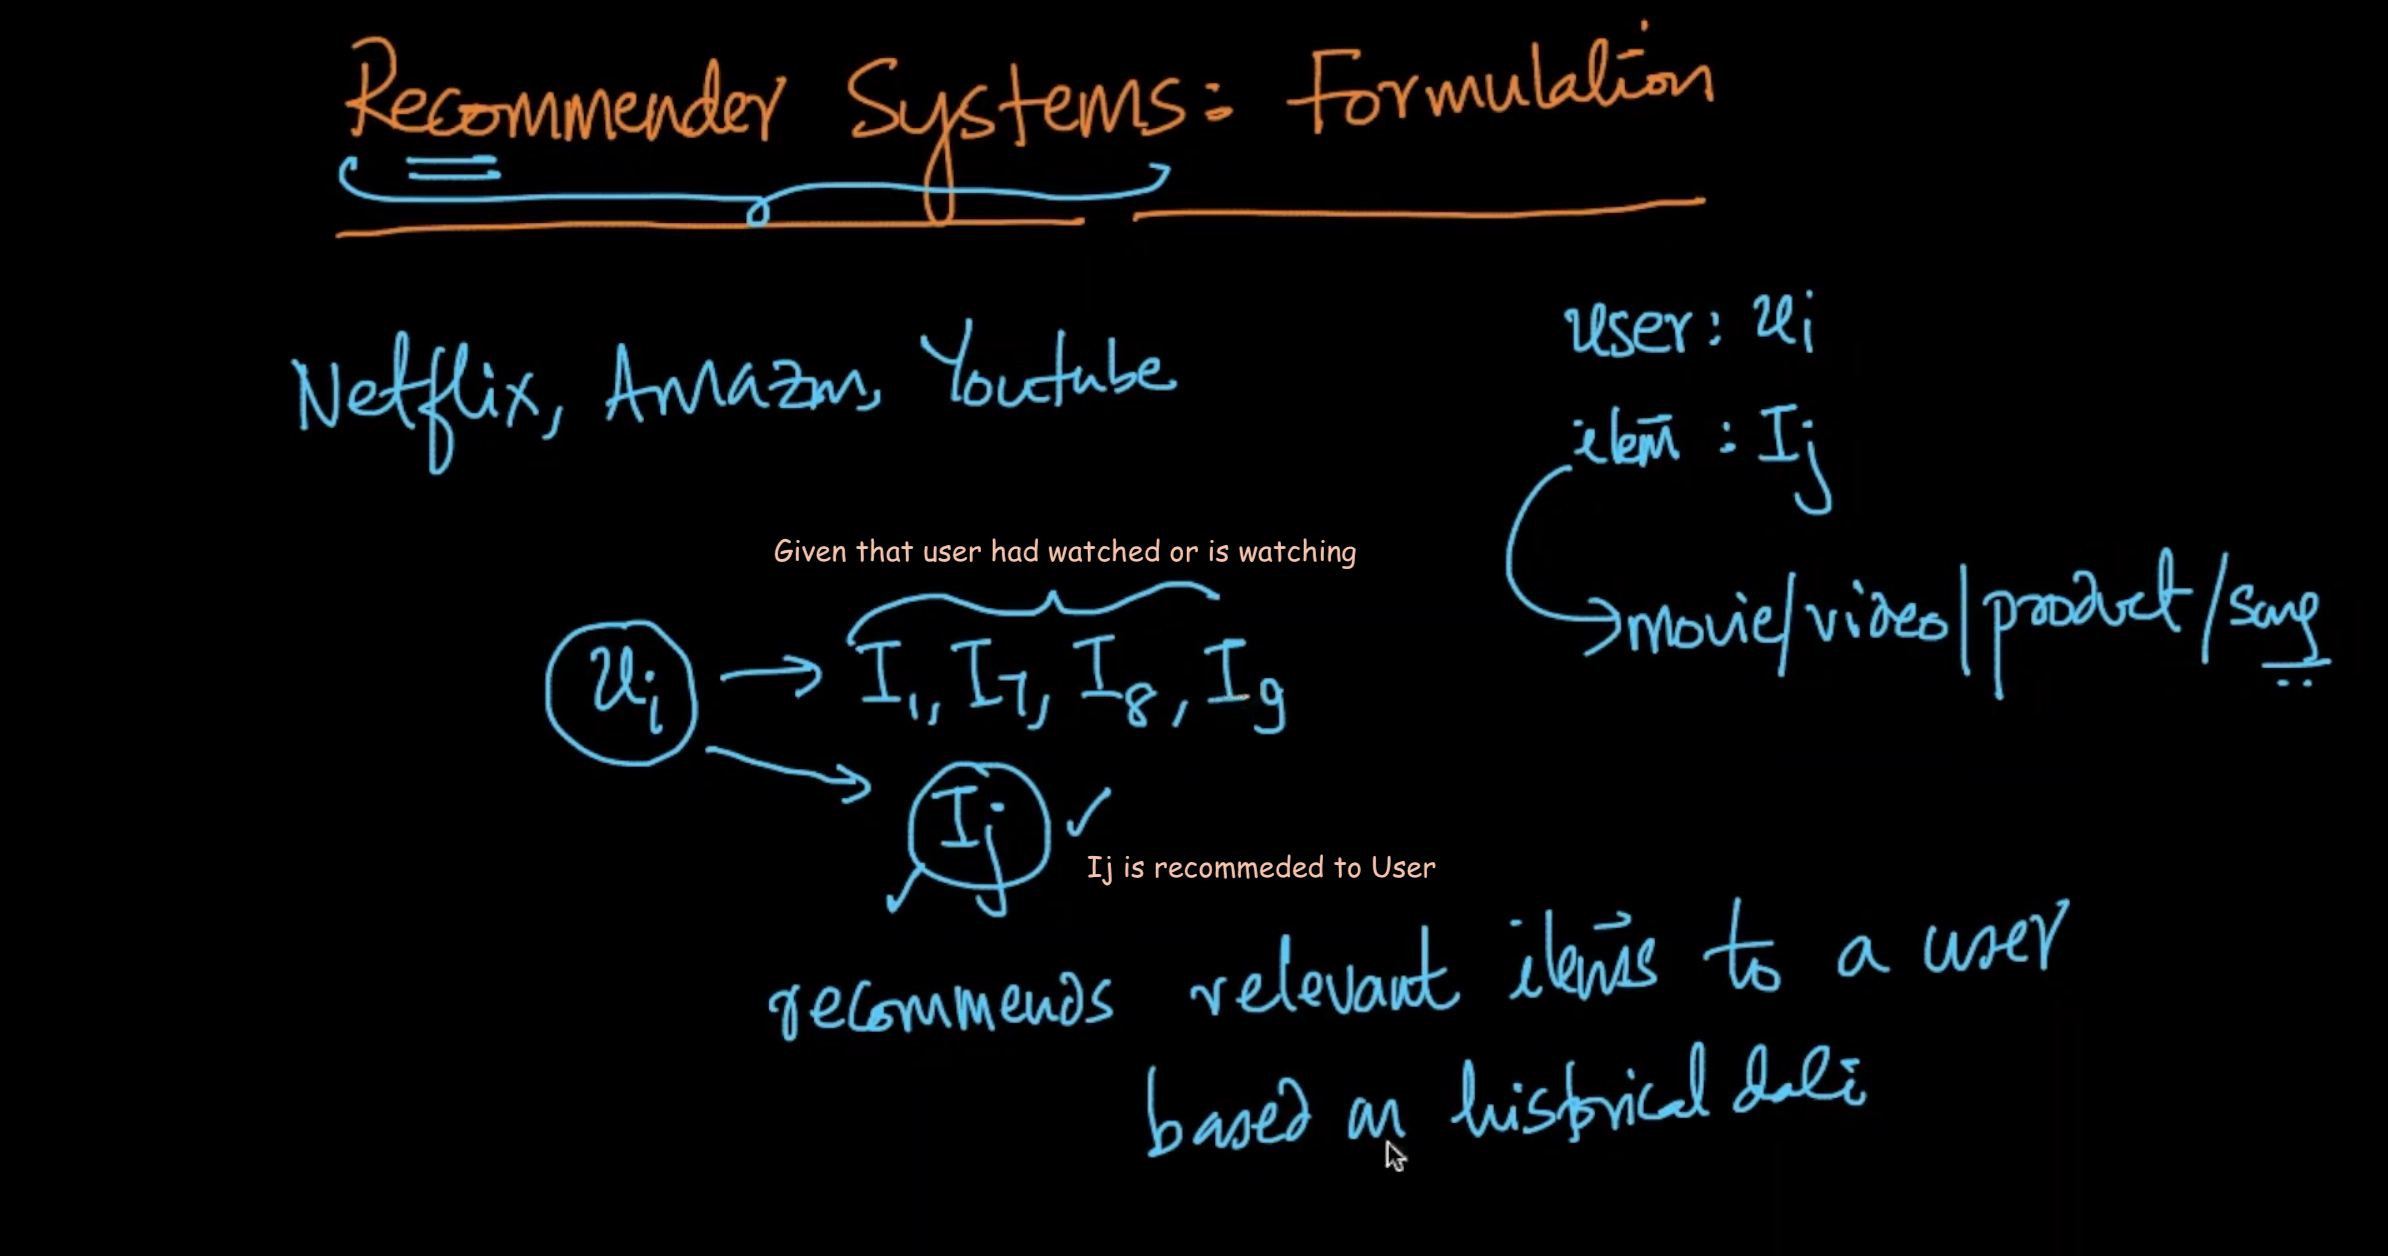 Recommender Systems: Formulation
Netflix, Amazon, Youtube
user: ui
item : Ij
movie/video/product/song
Given that user had watched or is watching
ui → I1, I7, I8, I9
Ij ✓
Ij is recommeded to User
recommends relevant items to a user
based on historical data